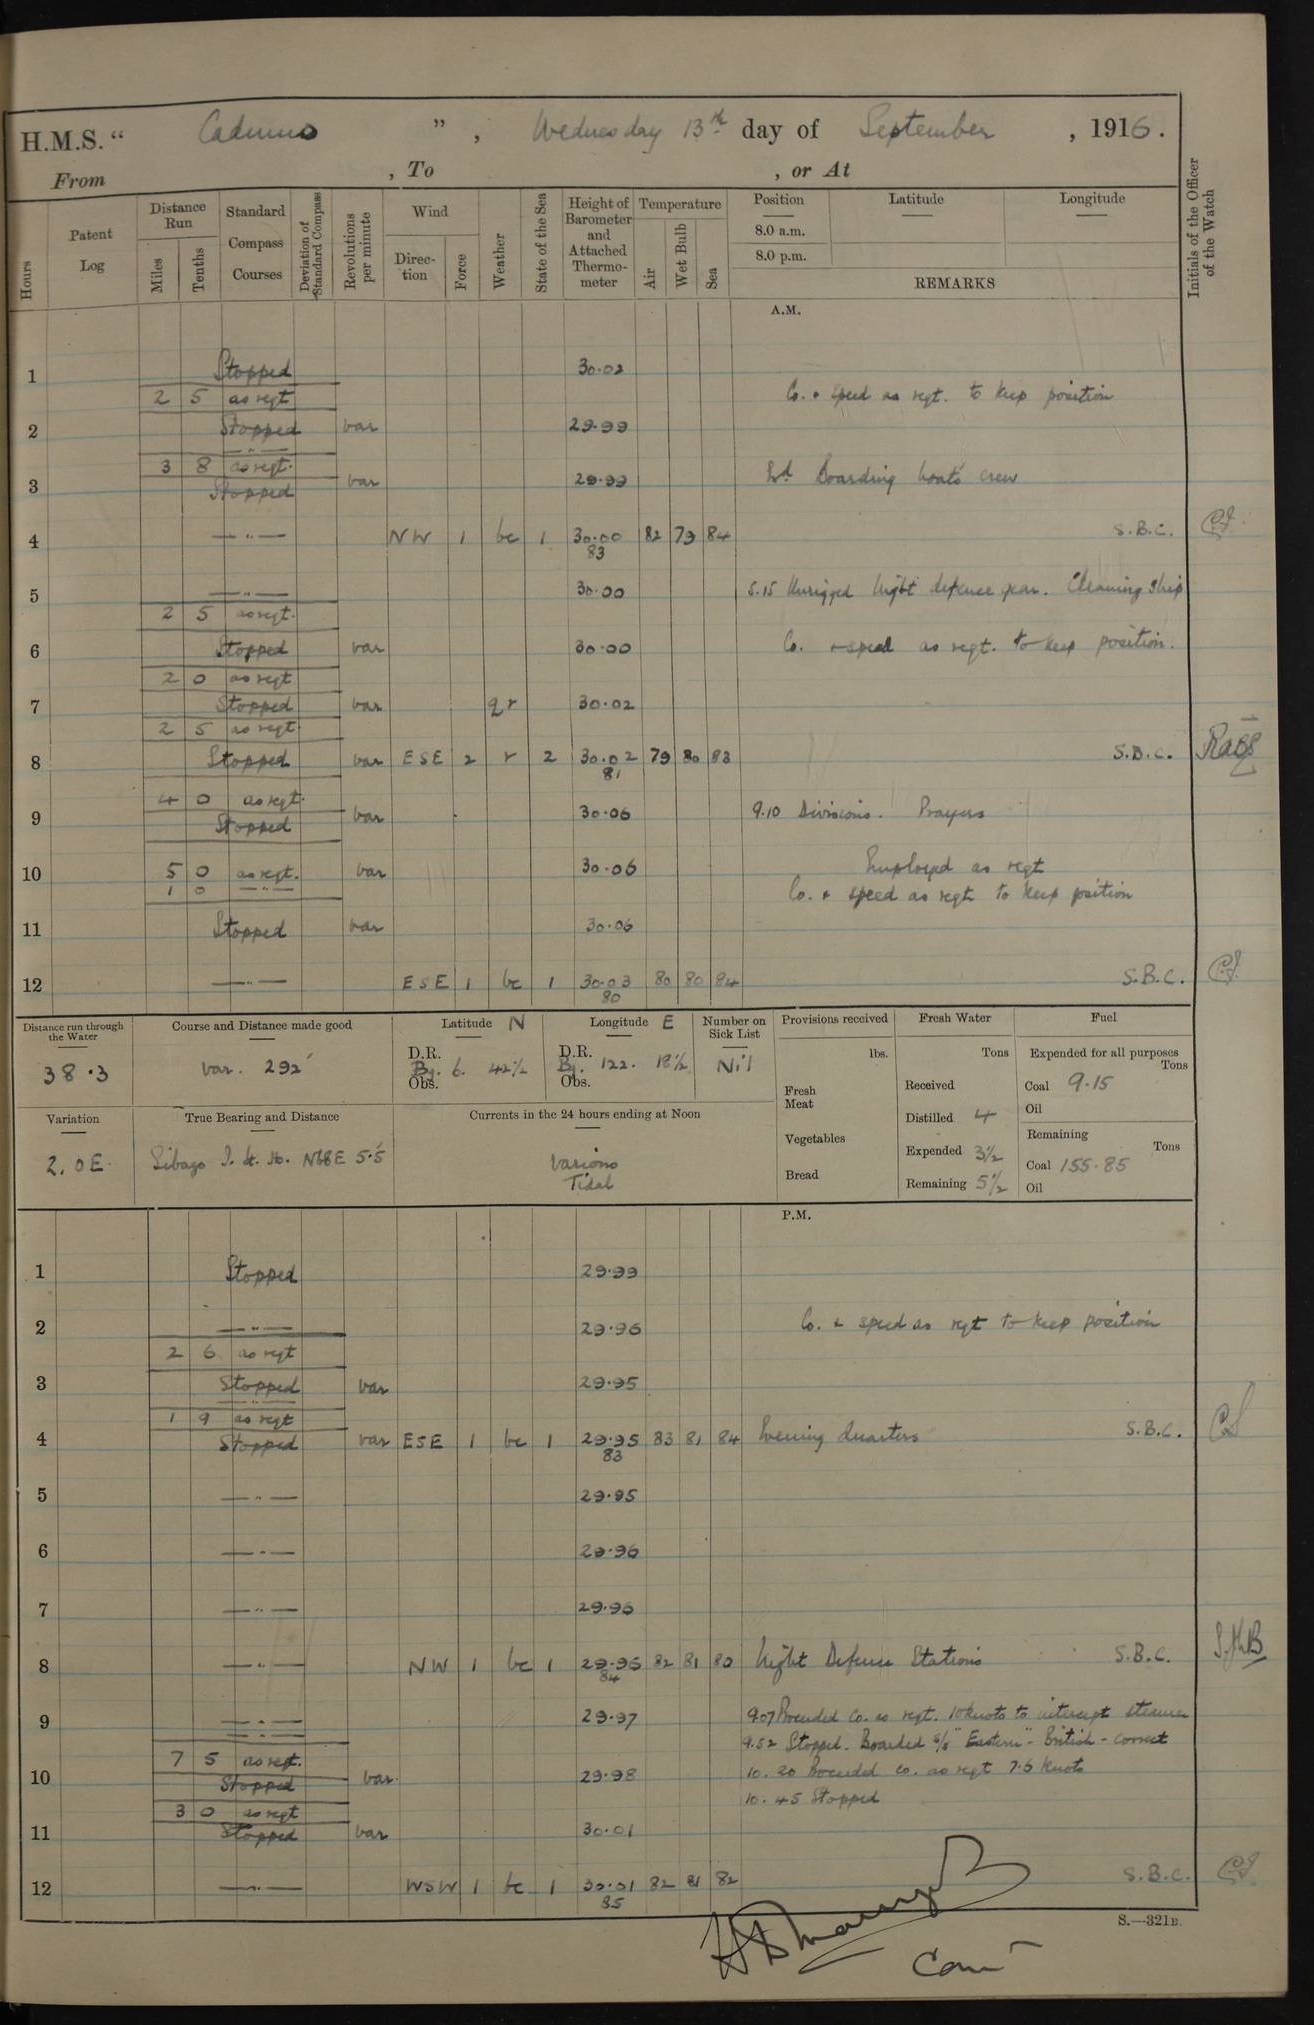 H.M.S. “ Cadmus ” , Wednesday 13th day of September , 1916 .
From , To , or At
Hours
Patent Log
Distance Run
Miles
Tenths
Standard Compass Courses
Deviation of Standard Compass
Revolutions per minute
Wind
Direction
Force
Weather
State of the Sea
Height of Barometer and Attached Thermometer
Temperature
Air
Wet Bulb
Sea
Position
8.0 a.m.
8.0 p.m.
Latitude
Longitude
REMARKS
Initials of the Officer of the Watch
A.M.
1 Stopped 30.02
2 5 as reqt Co. & speed as reqt. to keep position
2 Stopped var 29.99
— " —
3 8 as reqt.
3 Stopped var 29.99 Boarding boats crew
4 — " — NW 1 bc 1 30.00 82 79 84 S.B.C.
83
5 — " — 30.00 5.15 Unrigged night defence gear. Cleaning ship
2 5 as reqt.
6 Stopped var 30.00 Co. & speed as reqt. to keep position.
2 0 as reqt
7 Stopped var qr 30.02
2 5 as reqt
8 Stopped var ESE 2 r 2 30.02 79 80 83 S.B.C.
81
4 0 as reqt.
9 Stopped var 30.06 9.10 Divisions. Prayers
10 5 0 as reqt. var 30.06 Employed as reqt
1 0 — " — Co. & speed as reqt to keep position
11 Stopped var 30.06
12 — " — ESE 1 bc 1 30.03 80 80 84 S.B.C.
80
Distance run through the Water
38.3
Course and Distance made good
var. 292'
Latitude N
D.R.
By. 6. 42½
Obs.
Longitude E
D.R.
By. 122. 18½
Obs.
Number on Sick List
Nil
Provisions received
lbs.
Fresh Meat
Vegetables
Bread
Fresh Water
Tons
Received
Distilled 4
Expended 3½
Remaining 5½
Fuel
Expended for all purposes
Tons
Coal 9.15
Oil
Remaining
Tons
Coal 155.85
Oil
Variation
2.0E.
True Bearing and Distance
Sibago I. Lt. Ho. N68E 5.5
Currents in the 24 hours ending at Noon
Various
Tidal
P.M.
1 Stopped 29.99
2 — " — 29.96 Co. & speed as reqt to keep position
2 6 as reqt
3 Stopped var 29.95
— " —
1 9 as reqt
4 Stopped var ESE 1 bc 1 29.95 83 81 84 Evening Quarters S.B.C.
83
5 — " — 29.95
6 — " — 29.96
7 — " — 29.96
8 — " — NW 1 bc 1 29.96 82 81 80 Night Defence Stations S.B.C.
84
9 — " — 29.97 9.07 Proceeded Co. as reqt. 10 knots to intercept steamer
— " — 9.52 Stopped. Boarded s/s "Eastern" - British - correct
7 5 as reqt.
10 Stopped var. 29.98 10.20 Proceeded co. as reqt 7.5 knots
3 0 as reqt 10.45 Stopped
11 Stopped var 30.01
12 — " — WSW 1 bc 1 30.01 82 81 82 S.B.C.
85
S.—321B.